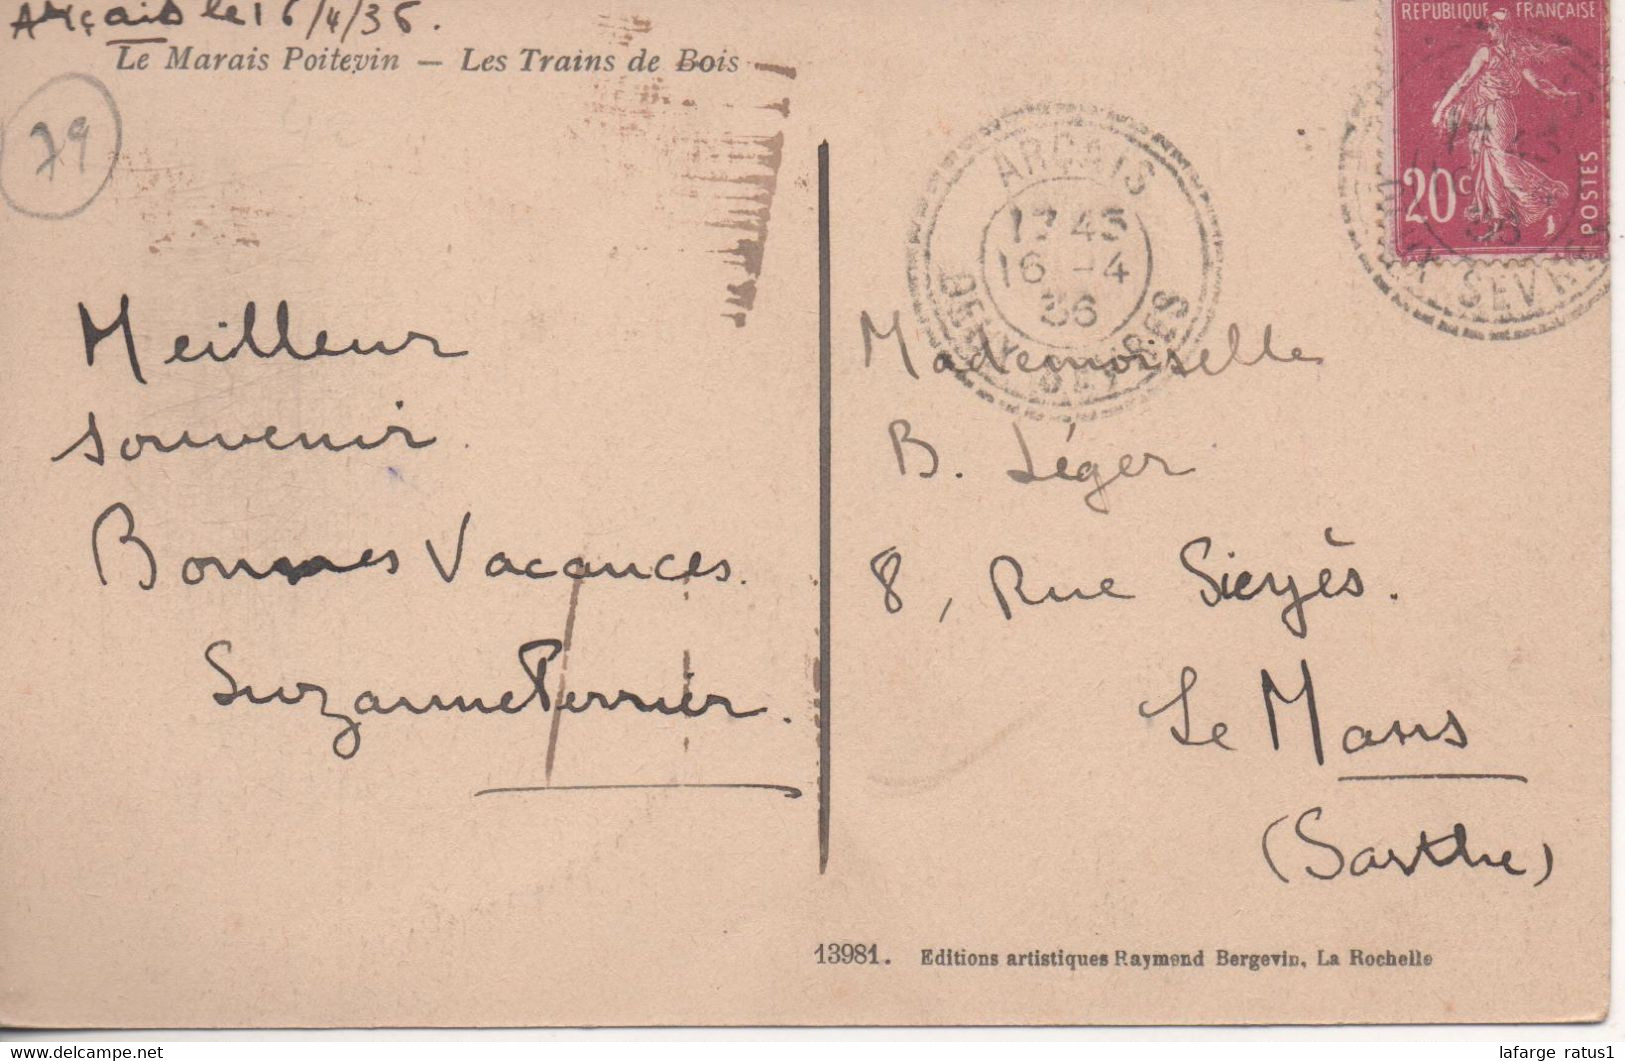 Arçais le 16/4/36.
Le Marais Poitevin — Les Trains de Bois
79
REPUBLIQUE FRANÇAISE
20c
POSTES
ARÇAIS
17 45
16 -4
36
DEUX SEVRES
Meilleur
souvenir.
Bonnes Vacances.
Suzanne Perrier.
Mademoiselle
B. Léger
8, Rue Sieyès.
Le Mans
(Sarthe)
13981. Editions artistiques Raymond Bergevin, La Rochelle
lafarge ratus1